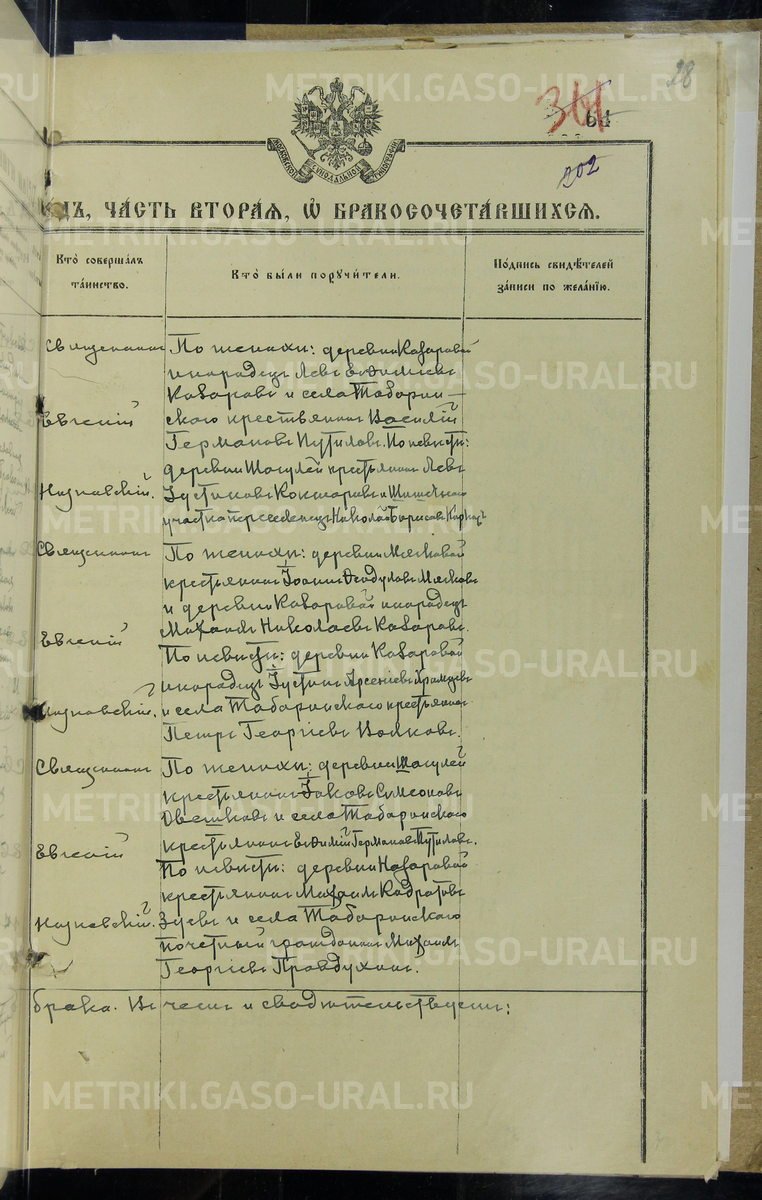 28
361
64
202
МОСКОВСКОЙ СѴНОДАЛЬНОЙ ТИПОГРАФІИ
ДЪ, ЧАСТЬ ВТОРАЯ, Ѡ БРАКОСОЧЕТАВШИХСЯ.
Кто совершалъ
таинство.
Кто были поручители.
Подпись свидѣтелей
записи по желанію.
Священникъ
Евгеній
По жениху: деревни Казаровой
инородецъ Левъ Евдиміевъ
Казаровъ и села Таборин-
скаго крестьянинъ Василій
Германовъ Путиловъ. По невѣстѣ:
деревни Шагулей крестьянинъ Левъ
Іустиновъ и
участка переселенецъ Николай Борисовъ
Священникъ
Евгеній
По жениху: деревни Мягковой
крестьянинъ Іоаннъ Ѳеодуловъ Мягковъ
и деревни Казаровой инородецъ
Михаилъ Николаевъ Казаровъ.
По невѣстѣ: деревни Казаровой
инородецъ Іустинъ Арсеніевъ
и села Таборинскаго крестьянинъ
Петръ Георгіевъ Волковъ.
Священникъ
Евгеній
По жениху: деревни Шагулей
крестьянинъ Іаковъ Симеоновъ
и села Таборинскаго
крестьянинъ Евдимій Германовъ Путиловъ.
По невѣстѣ: деревни Назаровой
крестьянинъ Михаилъ Кодратовъ
Зуевъ и села Таборинскаго
почетный гражданинъ Михаилъ
Георгіевъ Правдухинъ.
брака. Въ чемъ и свидѣтельствуемъ:
METRIKI.GASO-URAL.RU